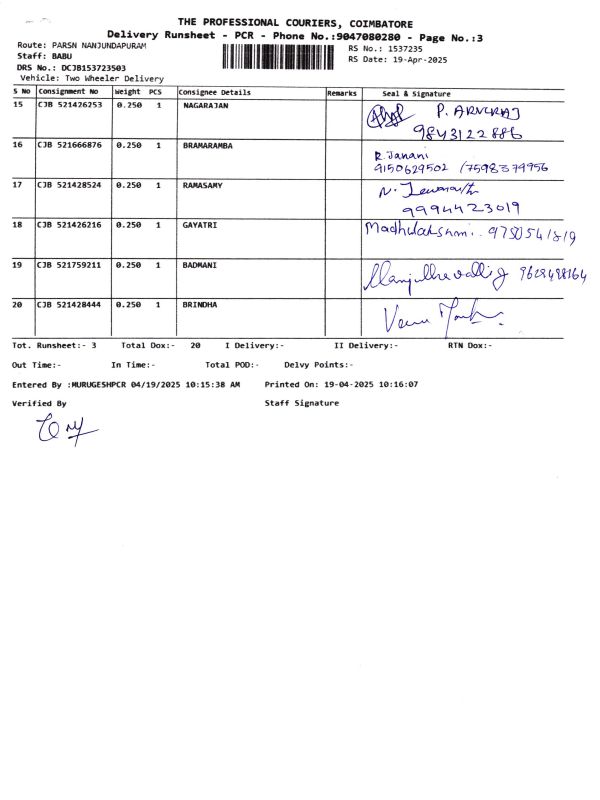 THE PROFESSIONAL COURIERS, COIMBATORE
Delivery Runsheet - PCR - Phone No.:9047080280 - Page No.:3
Route: PARSN NANJUNDAPURAM
RS No.: 1537235
Staff: BABU
RS Date: 19-Apr-2025
DRS No.: DCJB153723503
Vehicle: Two Wheeler Delivery
S No Consignment No Weight PCS Consignee Details Remarks Seal & Signature
15 CJB 521426253 0.250 1 NAGARAJAN P. ARUNRAJ
9843122886
16 CJB 521666876 0.250 1 BRAMARAMBA
R. Janani
9150629502 / 7598379956
17 CJB 521428524 0.250 1 RAMASAMY N.
9994423019
18 CJB 521426216 0.250 1 GAYATRI Madhulakshmi.
19 CJB 521759211 0.250 1 BADMANI
20 CJB 521428444 0.250 1 BRINDHA
Tot. Runsheet:- 3 Total Dox:- 20 I Delivery:- II Delivery:- RTN Dox:-
Out Time:- In Time:- Total POD:- Delvy Points:-
Entered By :MURUGESHPCR 04/19/2025 10:15:38 AM Printed On: 19-04-2025 10:16:07
Verified By Staff Signature